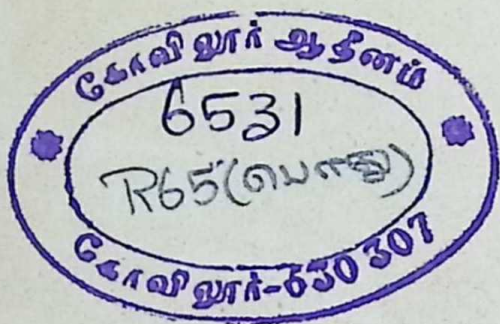 கோவிலூர் ஆதீனம்
6531
R65(பொது)
கோவிலூர்-630 307